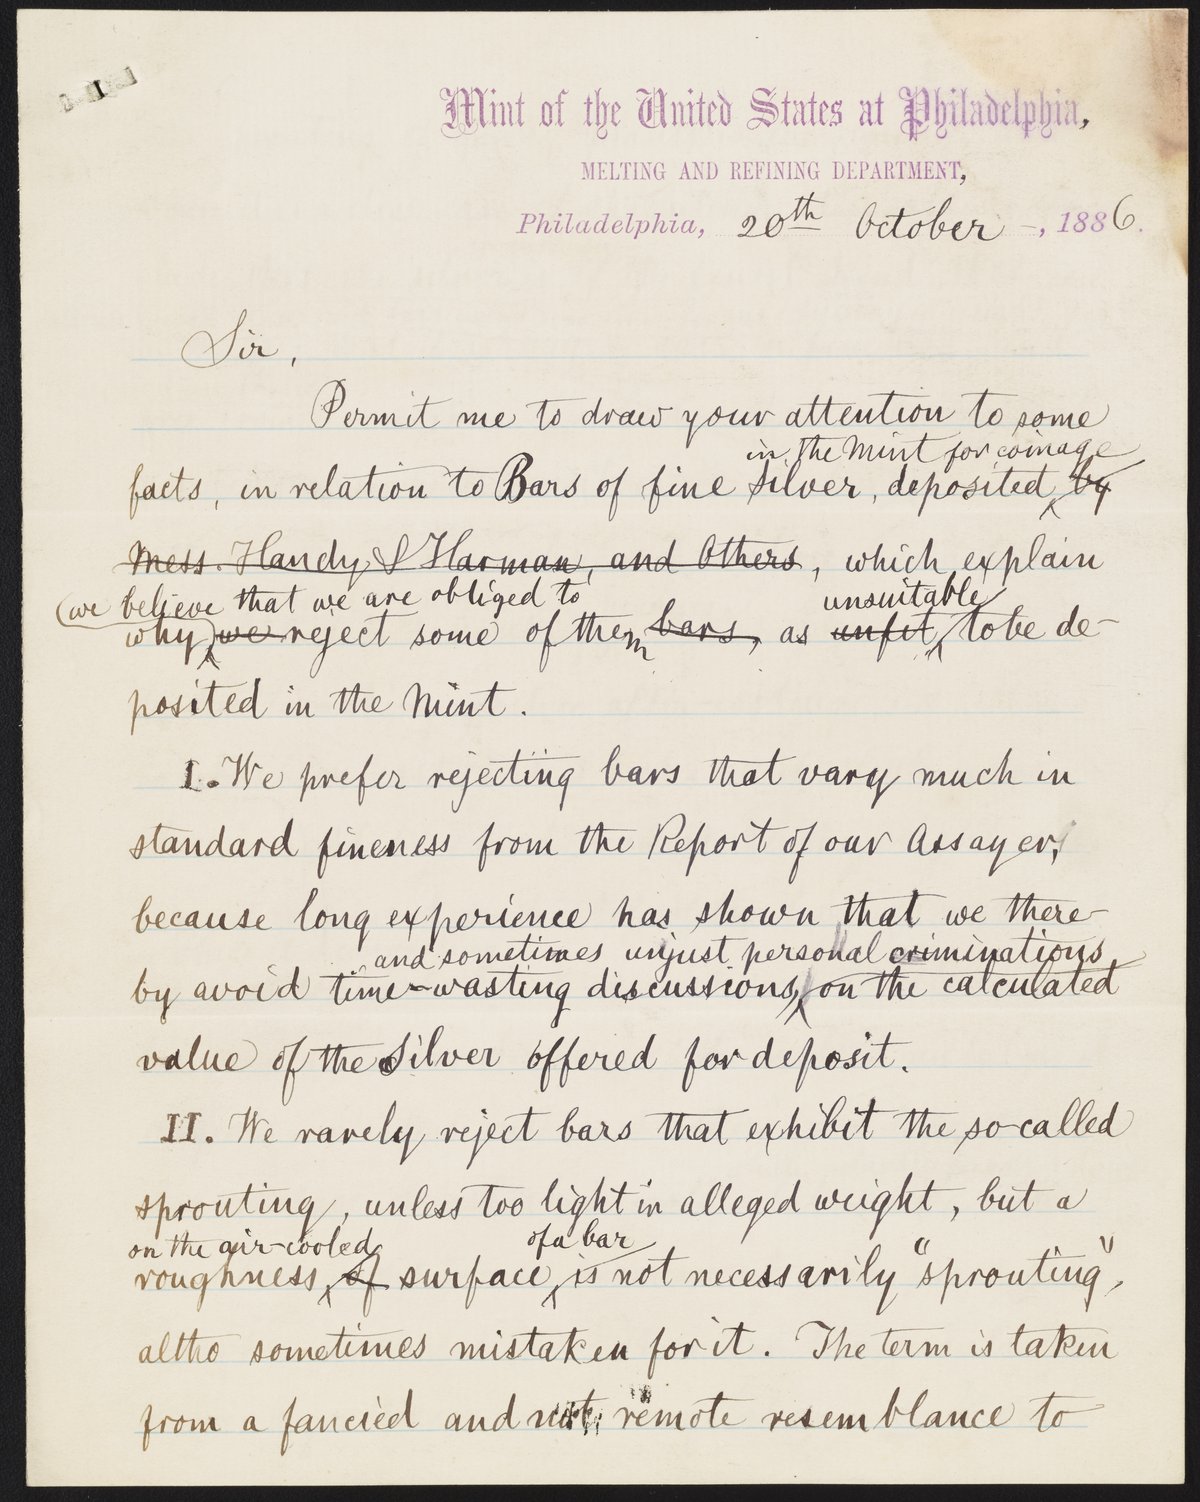 Mint of the United States at Philadelphia,
MELTING AND REFINING DEPARTMENT,
Philadelphia, 20th October -, 1886.
Sir,
Permit me to draw your attention to some
in the Mint for coinage
facts, in relation to Bars of fine Silver, deposited by
Mess. Handy & Harman, and Others, which explain
(we believe that we are obliged to
unsuitable
why) we reject some of them bars, as unfit, to be de-
posited in the Mint.
I. We prefer rejecting bars that vary much in
standard fineness from the Report of our Assayer,
because long experience has shown that we there-
and sometimes unjust personal criminations,
by avoid time-wasting discussions, on the calculated
value of the Silver offered for deposit.
II. We rarely reject bars that exhibit the so-called
sprouting, unless too light in alleged weight, but a
on the air-cooled
of a bar
roughness, of surface, is not necessarily "sprouting",
altho sometimes mistaken for it. The term is taken
from a fancied and not remote resemblance to